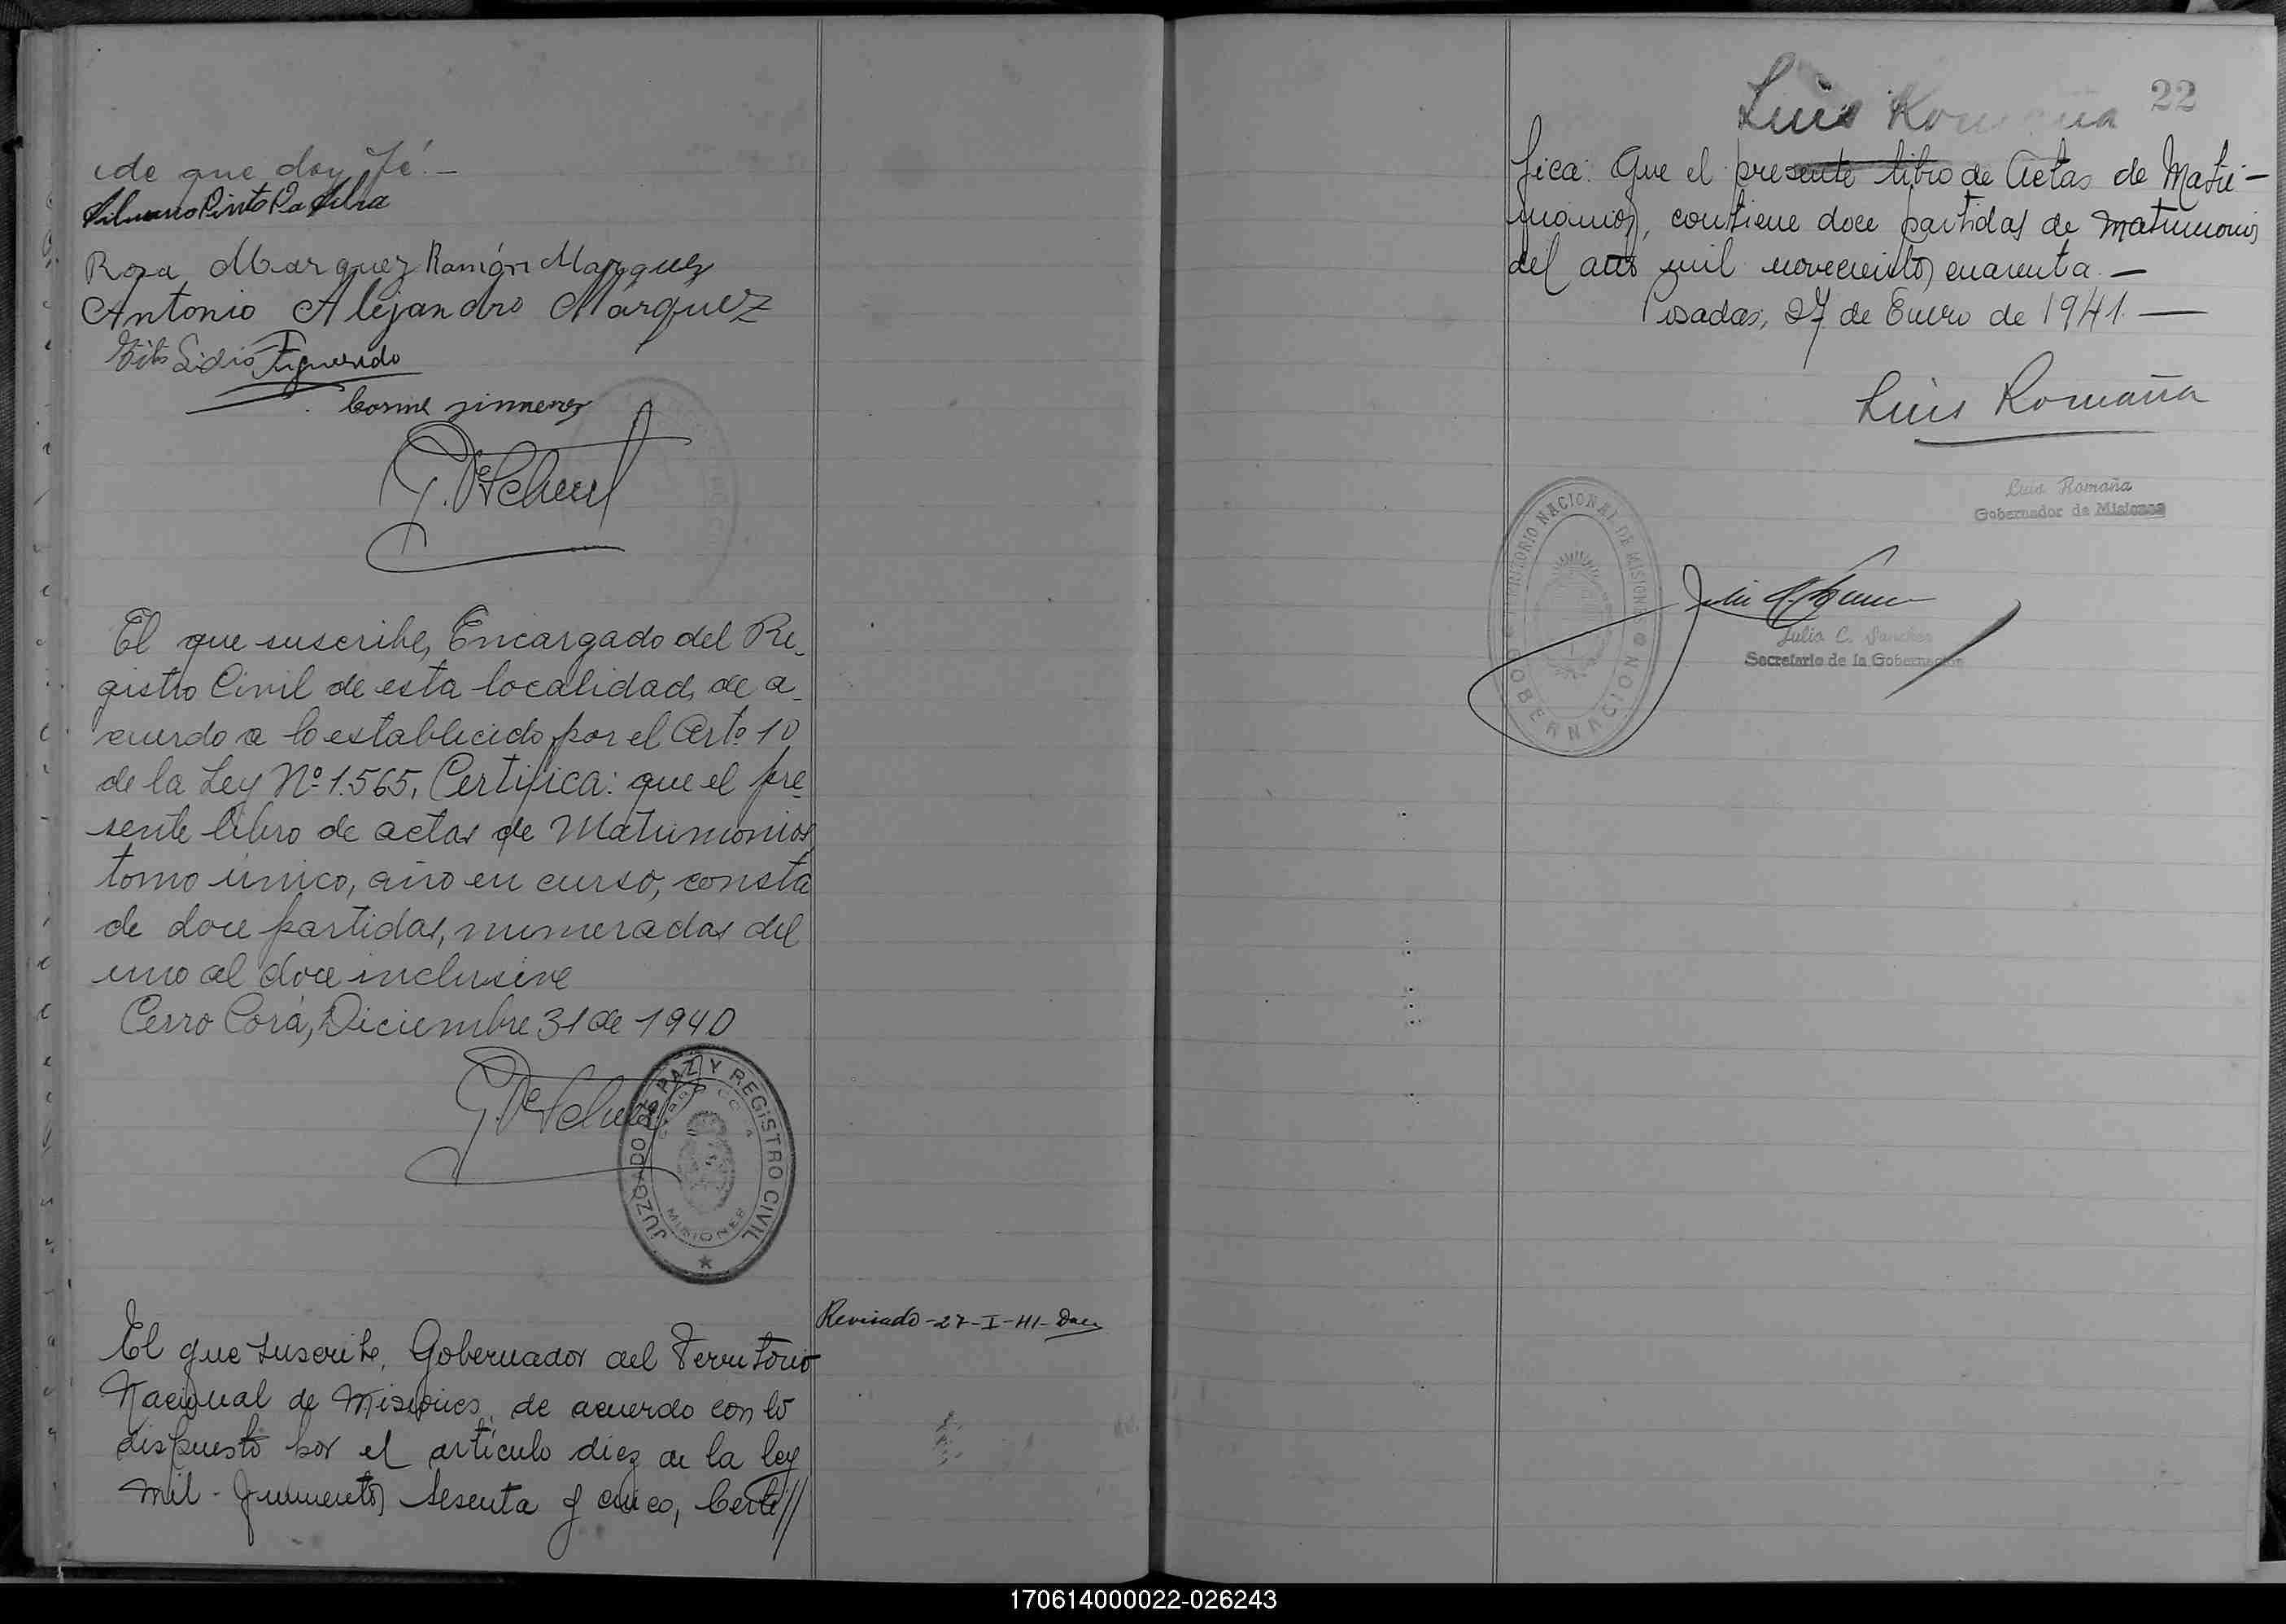 de que doy fé.-
Silvano Pinto Da Silva
Rosa Marquez Ramón Marquez
Antonio Alejandro Márquez
Tito Lidio Figueredo
Cosme Jimenez
El que suscribe, Encargado del Re-
gistro Civil de esta localidad, de a-
cuerdo a lo establecido por el Artº. 10
de la Ley Nº 1.565, Certifica: que el pre-
sente libro de actas de Matrimonios,
tomo único, año en curso, consta
de doce partidas, numeradas del
uno al doce inclusive
Cerro Corá, Diciembre 31 de 1940
JUZGADO DE PAZ Y REGISTRO CIVIL
CERRO CORA
MISIONES
Revisado-27-I-41-
El que suscribe, Gobernador del Territorio
Nacional de Misiones, de acuerdo con lo
dispuesto por el artículo diez de la ley
mil-quinientos sesenta y cinco, Certi//
22
Luis Romaña
fica: Que el presente libro de Actas de Matri-
monios, contiene doce partidas de matrimonios
del año mil novecientos cuarenta.-
Posadas, 27 de Enero de 1941.-
Luis Romaña
Luis Romaña
Gobernador de Misiones
TERRITORIO NACIONAL DE MISIONES
GOBERNACION
Julio C. Sanchez
Secretario de la Gobernación
170614000022-026243